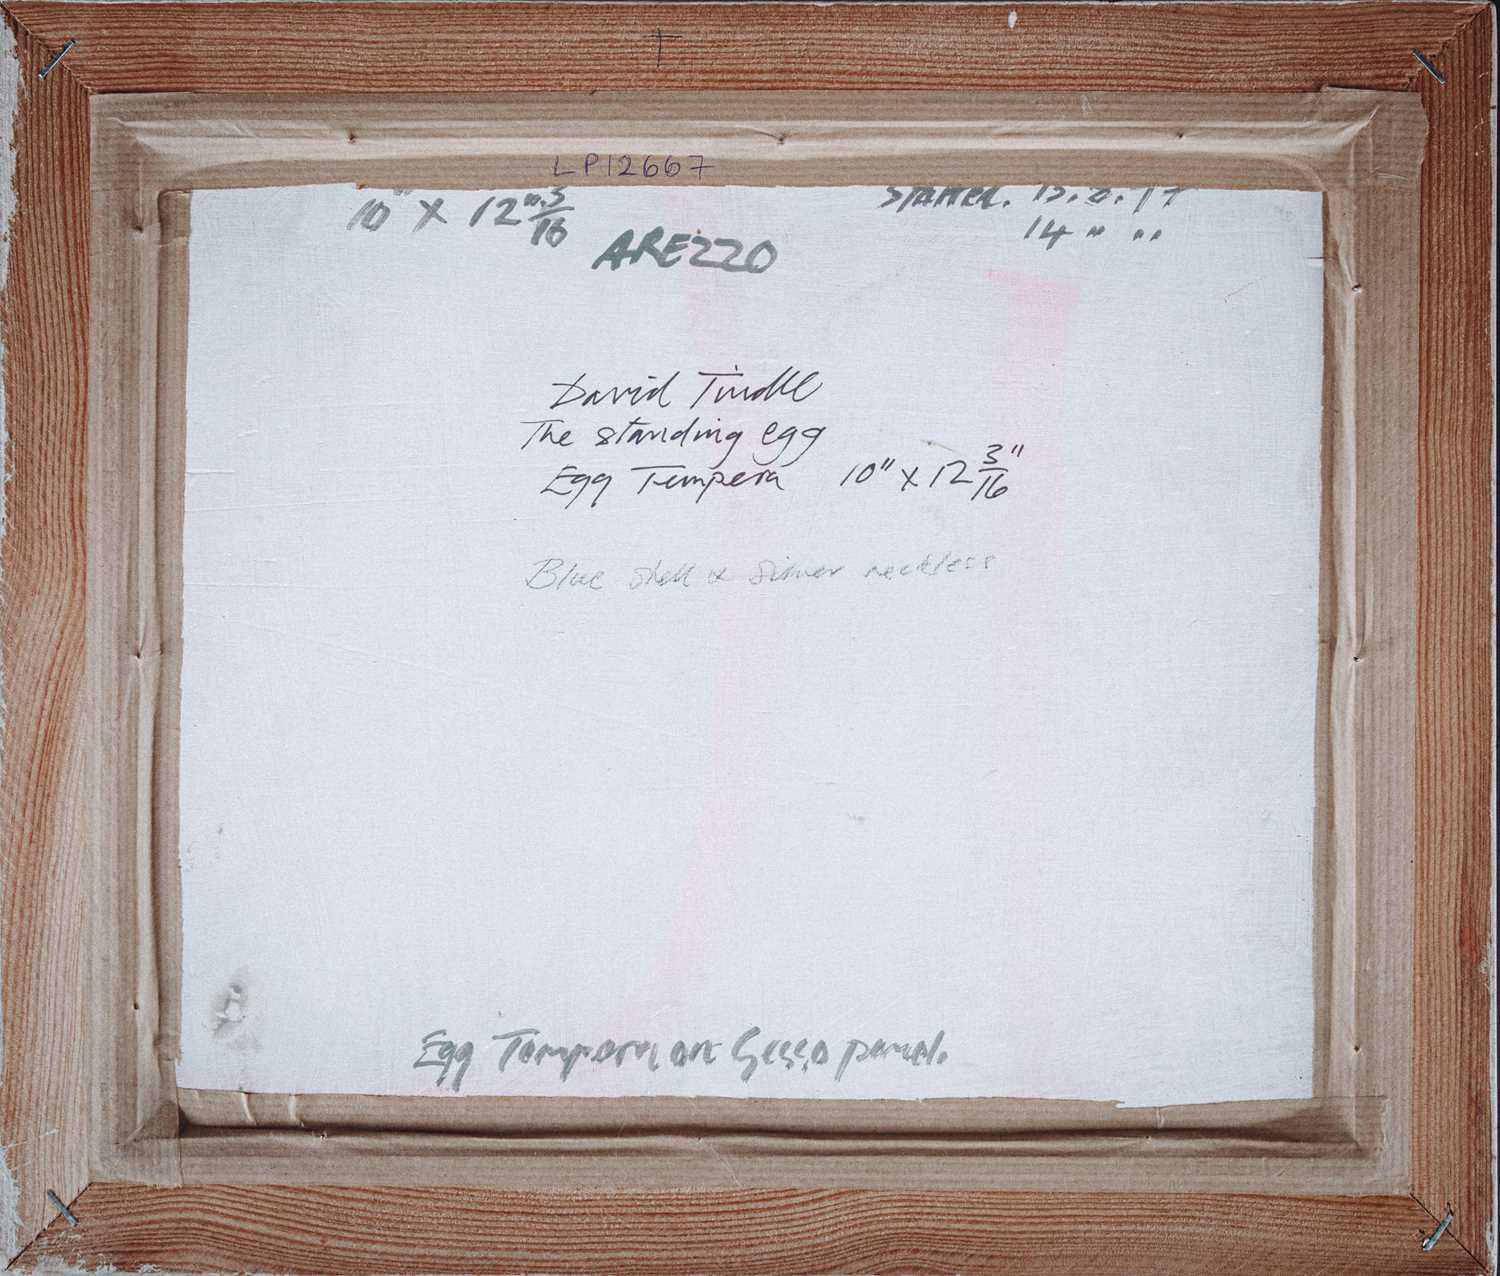 LP12667
10" X 12".3/16
Started.
14 " "
AREZZO
David Tindle
The standing egg
Egg Tempera 10" x 12 3/16"
Blue shell & silver neckless
Egg Tempera on Gesso panel.